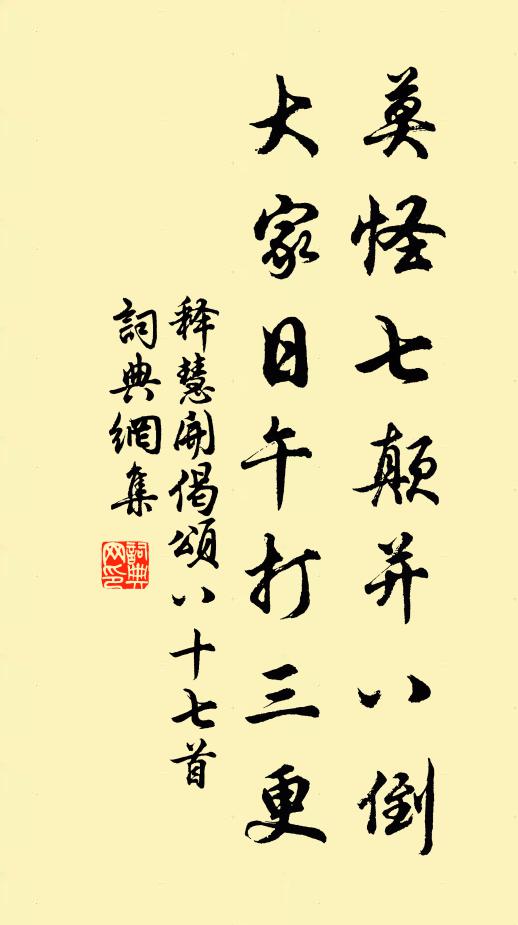 莫怪七颠并八倒
大家日午打三更
释慧開偈頌八十七首
詞典網集
詞典网印